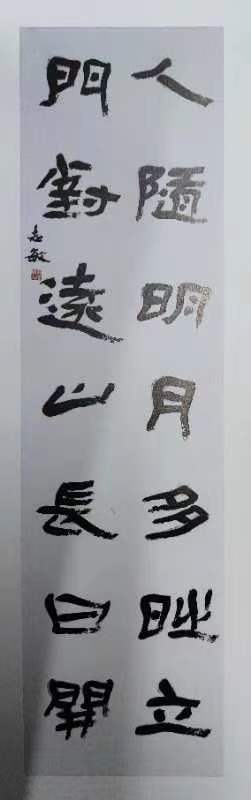 人隨明月多時立
門對遠山長日開
志敏